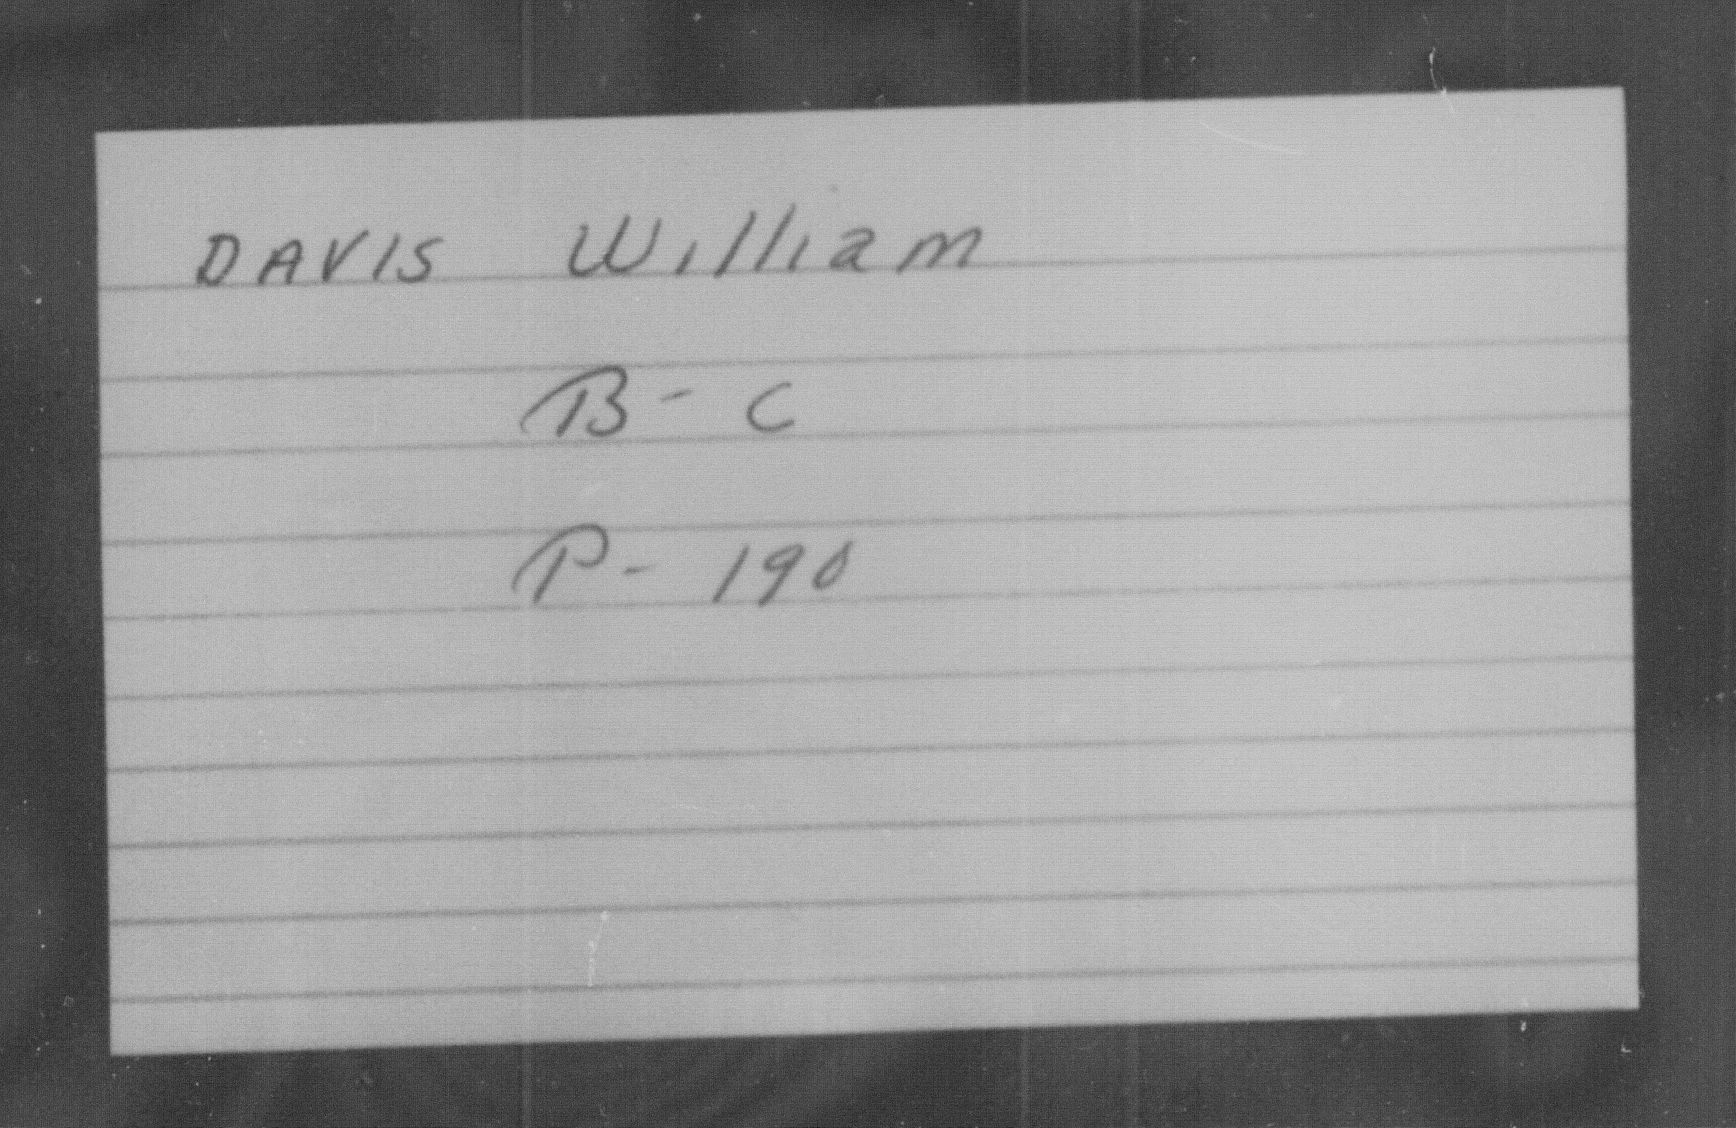 DAVIS William
B - C
P - 190